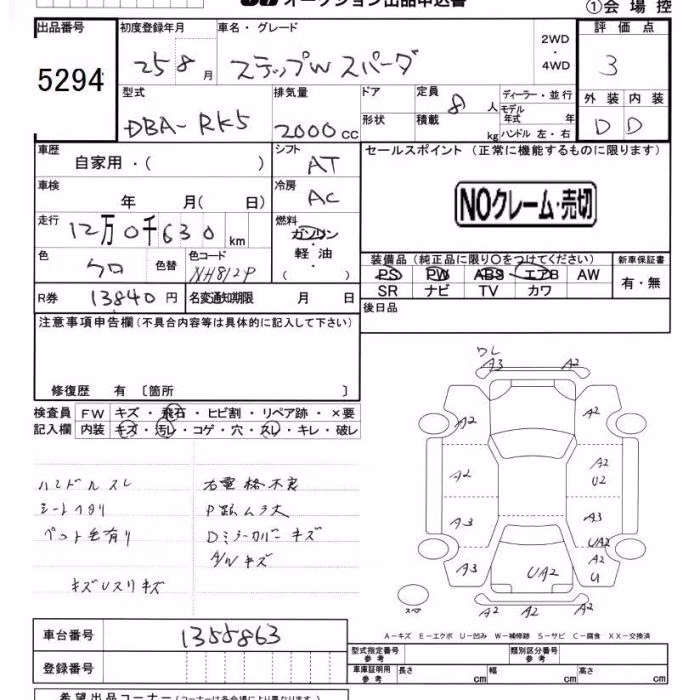 オークション出品申込書
①会場控
出品番号
5294
初度登録年月
25 8月
車名・グレード
ステップW スパーダ
2WD
・
4WD
評価点
3
型式
DBA-RK5
排気量
2000cc
ドア
形状
定員 8人
積載 kg
ディーラー・並行
モデル年式 年
ハンドル 左・右
外装 内装
D D
車歴
自家用・( )
シフト
AT
セールスポイント (正常に機能するものに限ります)
NOクレーム・売切
車検
年 月( 日)
冷房
AC
走行
12万0千630km
燃料
ガソリン
・
軽油
・
( )
色
クロ
色替
色コード
NH812P
装備品 (純正品に限り〇をつけてください)
PS PW ABS エアB AW
SR ナビ TV カワ
新車保証書
有・無
R券 13840円
名変通知期限 月 日
後日品
注意事項申告欄 (不具合内容等は具体的に記入して下さい)
修復歴 有 〔箇所 〕
検査員 FW キズ・飛石・ヒビ割・リペア跡・×要
記入欄 内装 キズ・汚レ・コゲ・穴・スレ・キレ・破レ
ハンドルスレ
シート
ペット毛有り
キズUスリキズ
右電格不良
P跡ムラ大
Dミラーカバーキズ
A/Wキズ
ワレ
A3 A2
A2 A2
A2 A2
U2
A3 A3
UA2
A3 UA2 A2
U
スペア
A2 A2 A2
A-キズ E-エクボ U-凹み W-補修跡 S-サビ C-腐食 XX-交換済
車台番号 1355863
登録番号
型式指定番号
参考
類別区分番号
参考
車庫証明用
参考
長さ cm 幅 cm 高さ cm
希望出品コーナー (コーナーは各会場により異なります。)